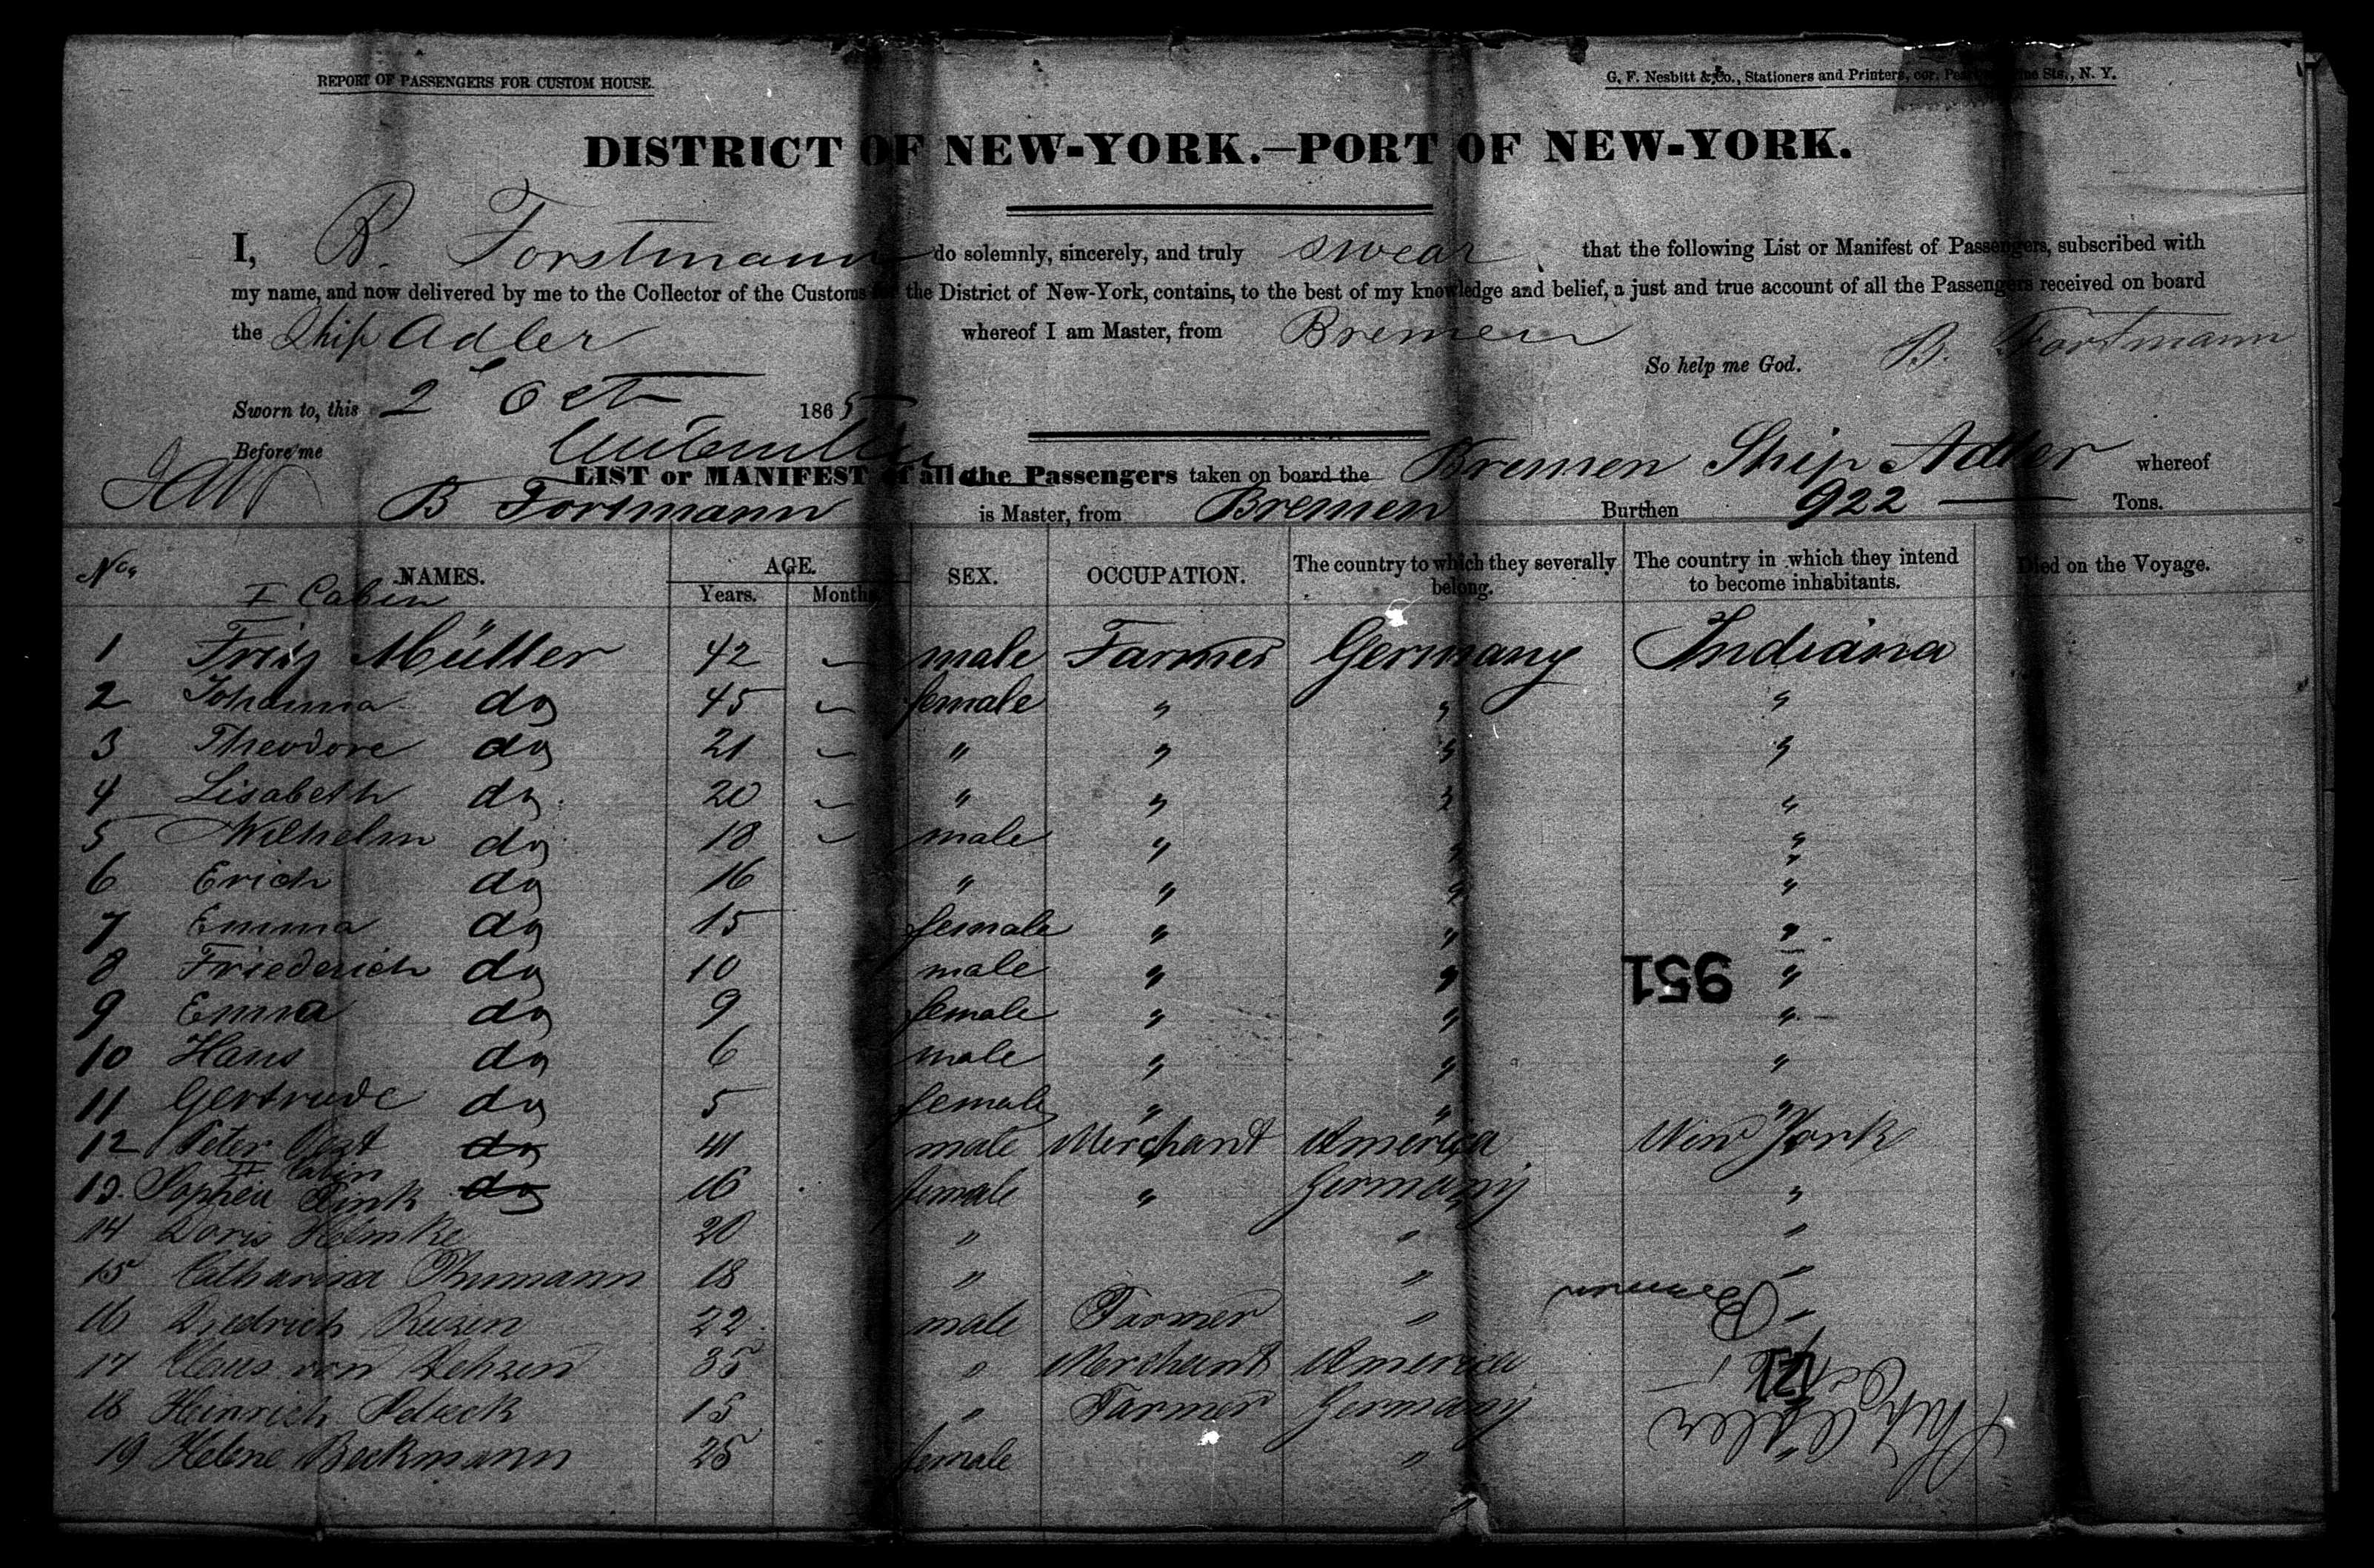 REPORT OF PASSENGERS FOR CUSTOM HOUSE.
G. F. Nesbitt & Co., Stationers and Printers, cor. Pearl Sts., N. Y.
DISTRICT OF NEW-YORK.—PORT OF NEW-YORK.
I, B. Forstmann do solemnly, sincerely, and truly swear that the following List or Manifest of Passengers, subscribed with
my name, and now delivered by me to the Collector of the Customs for the District of New-York, contains, to the best of my knowledge and belief, a just and true account of all the Passengers received on board
the Ship Adler whereof I am Master, from Bremen
So help me God. B. Forstmann
Sworn to, this 2 Oct 1865
Before me
LIST or MANIFEST of all the Passengers taken on board the Bremen Ship Adler whereof
B Forstmann is Master, from Bremen Burthen 922 — Tons.
Nos NAMES. AGE. Years. Months SEX. OCCUPATION. The country to which they severally belong. The country in which they intend to become inhabitants. Died on the Voyage.
I Cabin
1 Fritz Müller 42 male Farmer Germany Indiana
2 Johanna do 45 female " " "
3 Theodore do 21 " " " "
4 Lisabeth do 20 " " " "
5 Wilhelm do 18 male " " "
6 Erich do 16 " " " "
7 Emma do 15 female " " "
8 Friederich do 10 male " " "
9 Emma do 9 female " " "
10 Hans do 6 male " " "
11 Gertrude do 5 female " " "
12 Peter do 41 male Merchant America New York
II Cabin
13. do 16 female " Germany "
14 Doris Helmke 20 " " "
15 Catharina 18 " " "
16 Diedrich 22 male Farmer " "
17 Claus von 35 " Merchant America
18 Heinrich 15 " Farmer Germany
19 Helene Beckmann 25 female "
951
Bremen
171
Ship Adler